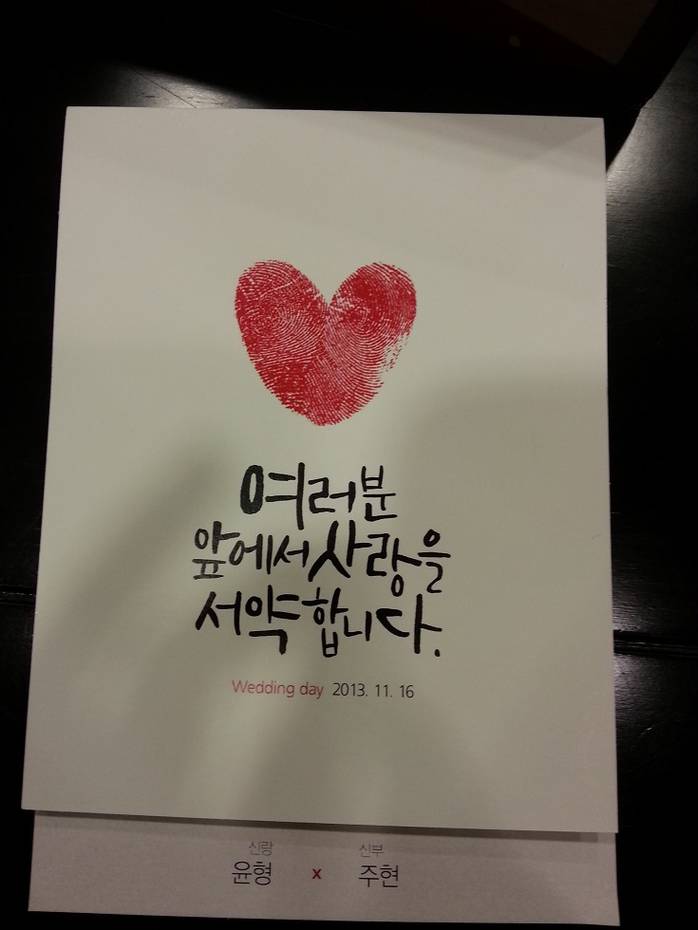 여러분
앞에서 사랑을
서약합니다.
Wedding day 2013. 11. 16
신랑 신부
윤형 x 주현